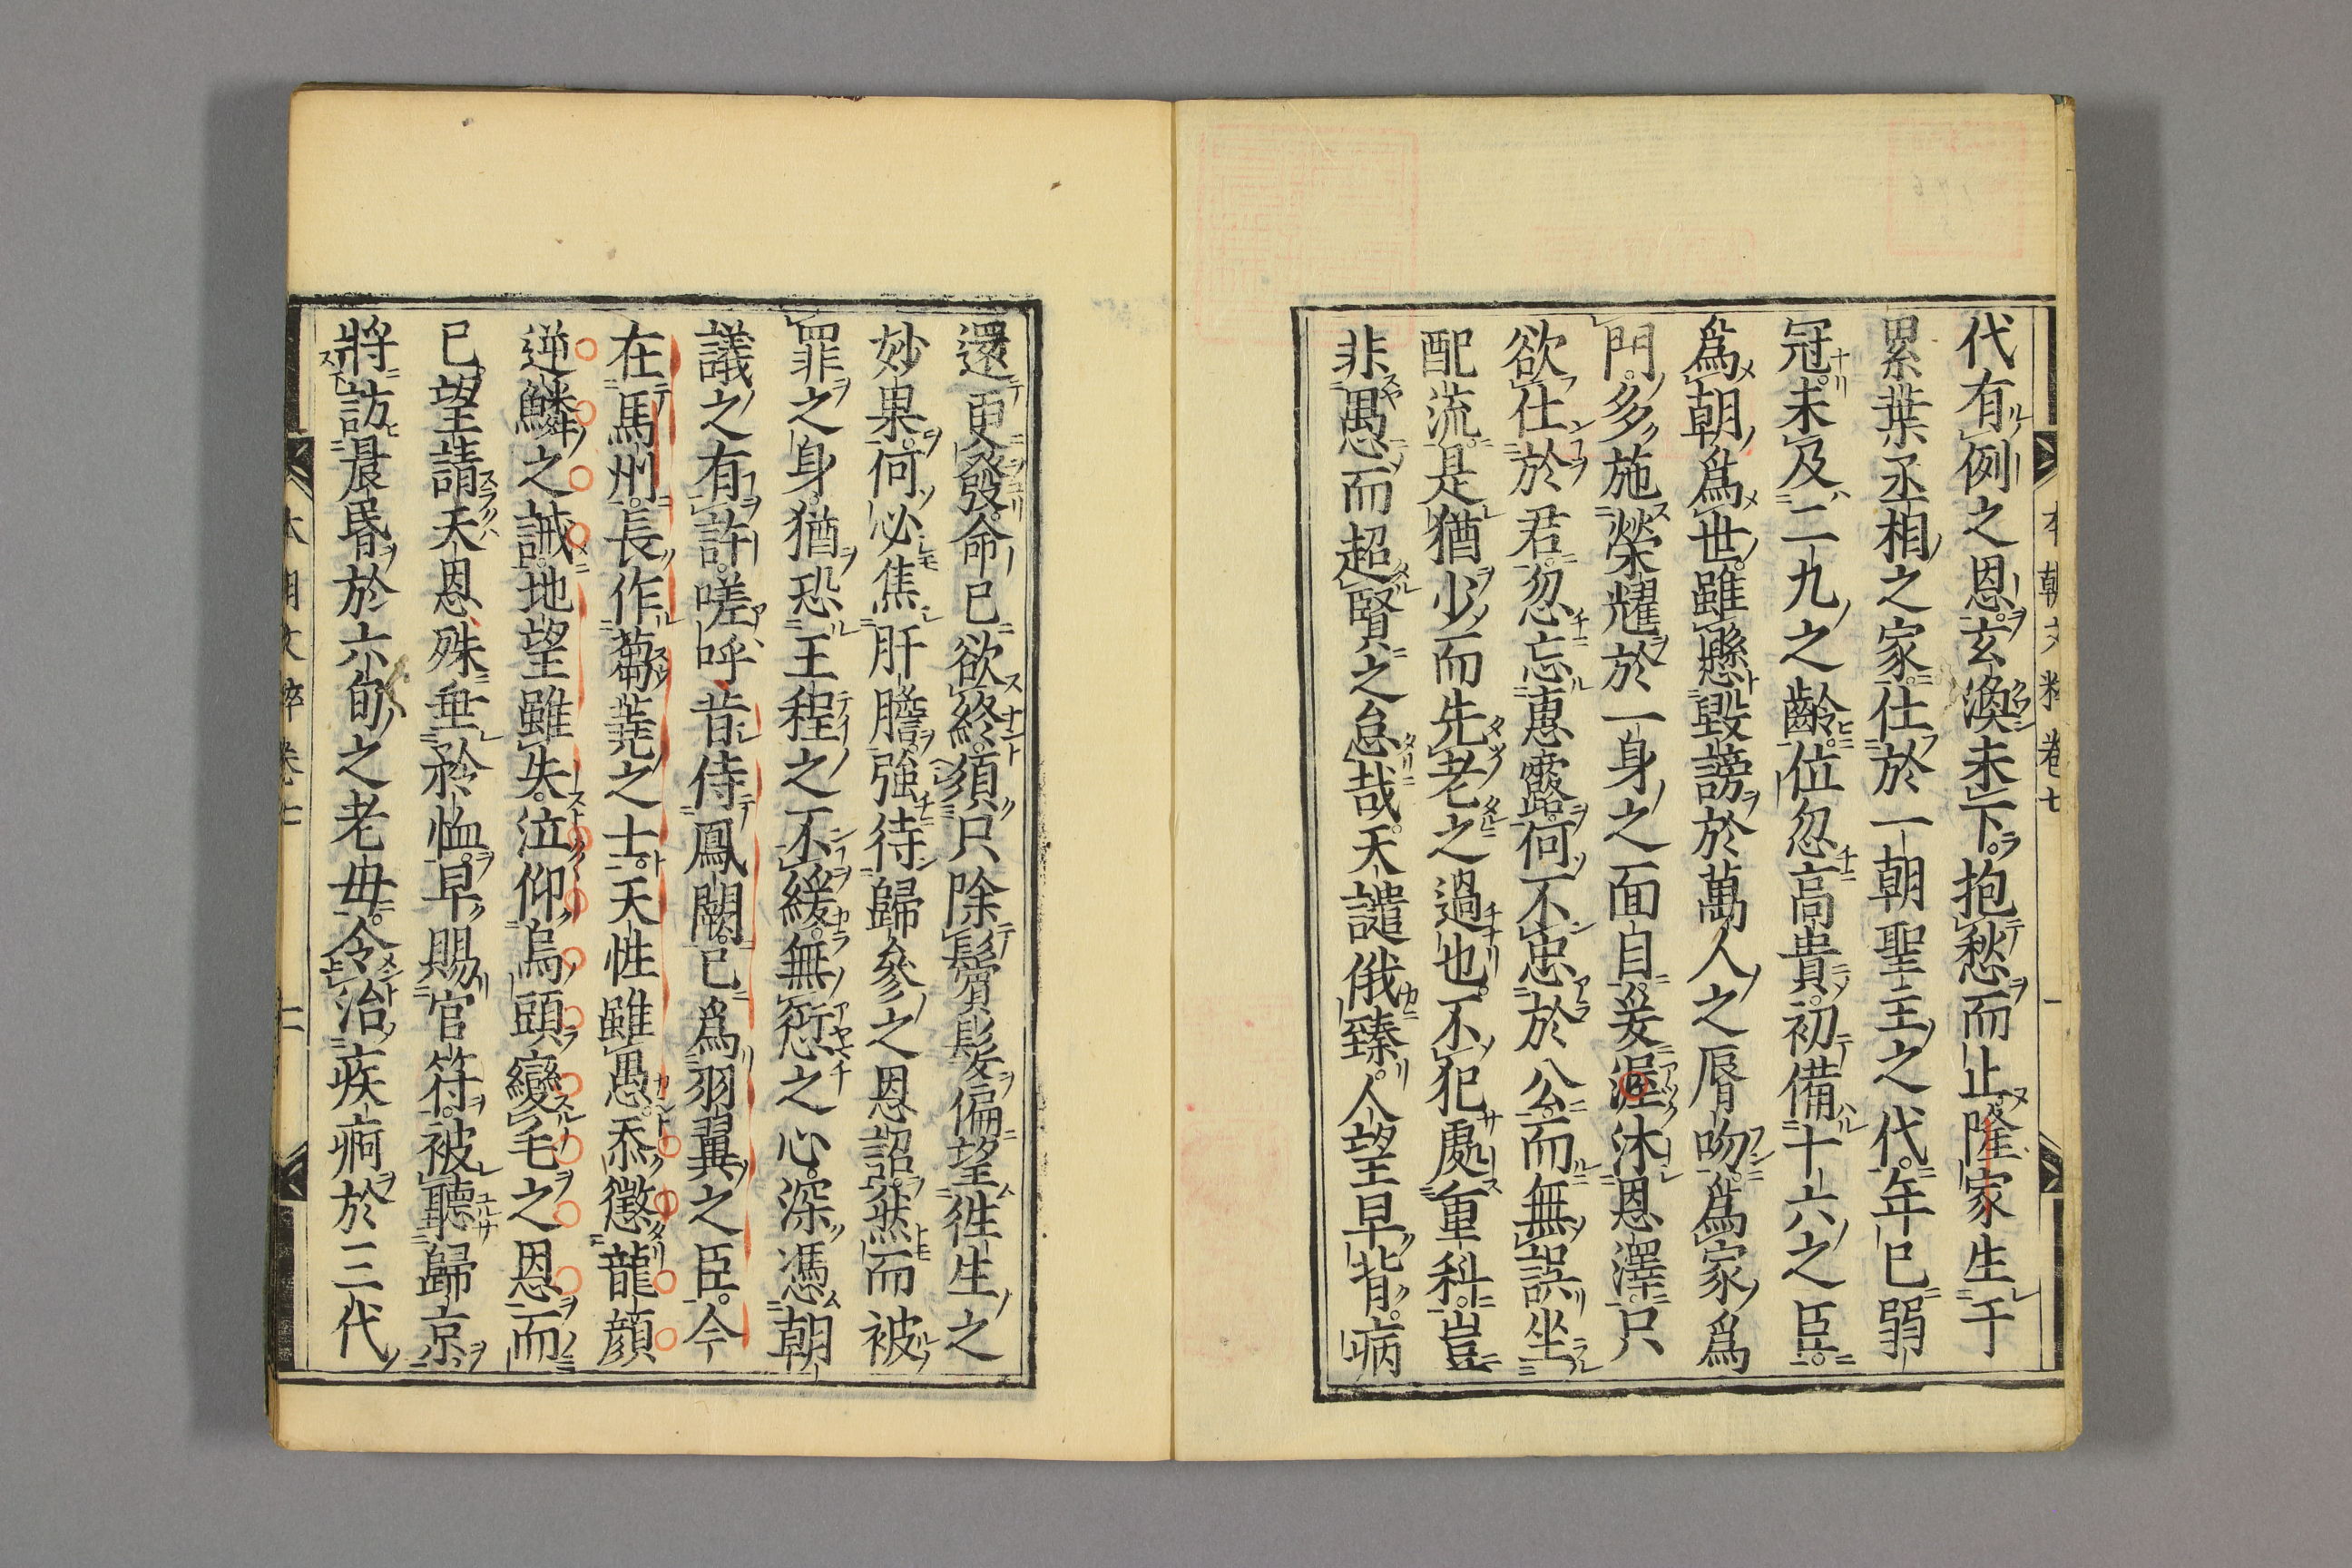 代有例之恩。玄渙未下。抱愁而止。隆家生于
累葉丞相之家。仕於一朝聖主之代。年已弱
冠。未及二九之齡。位忽高貴。初備十六之臣。
爲朝爲世。雖懸毀謗於萬人之脣吻。爲家爲
門。多施榮耀於一身之面目。爰渥沐恩澤。只
欲仕於君。忽忘惠露。何不忠於公。而無誤坐
配流。是猶少而先老之過也。不犯處重科。豈
非愚而超賢之怠哉。天譴俄臻。人望早背。病
還更發。命已欲終。須只除鬢髮偏望徃生之
妙果。何必焦肝膽。強待歸參之恩詔。然而被
罪之身。猶恐王程之不緩。無愆之心。深憑朝
議之有許。嗟呼昔侍鳳闕。已爲羽翼之臣。今
在馬州。長作蒭蕘之士。天性雖愚。忝懲龍顔
逆鱗之誡。地望雖失。泣仰烏頭變毛之恩。而
已。望請天恩。殊垂矜恤。早賜官符。被聽歸京。
將訪晨昏於六旬之老母。令治疾痾於三代
本朝文粹卷七
一
本朝文粹卷七
二